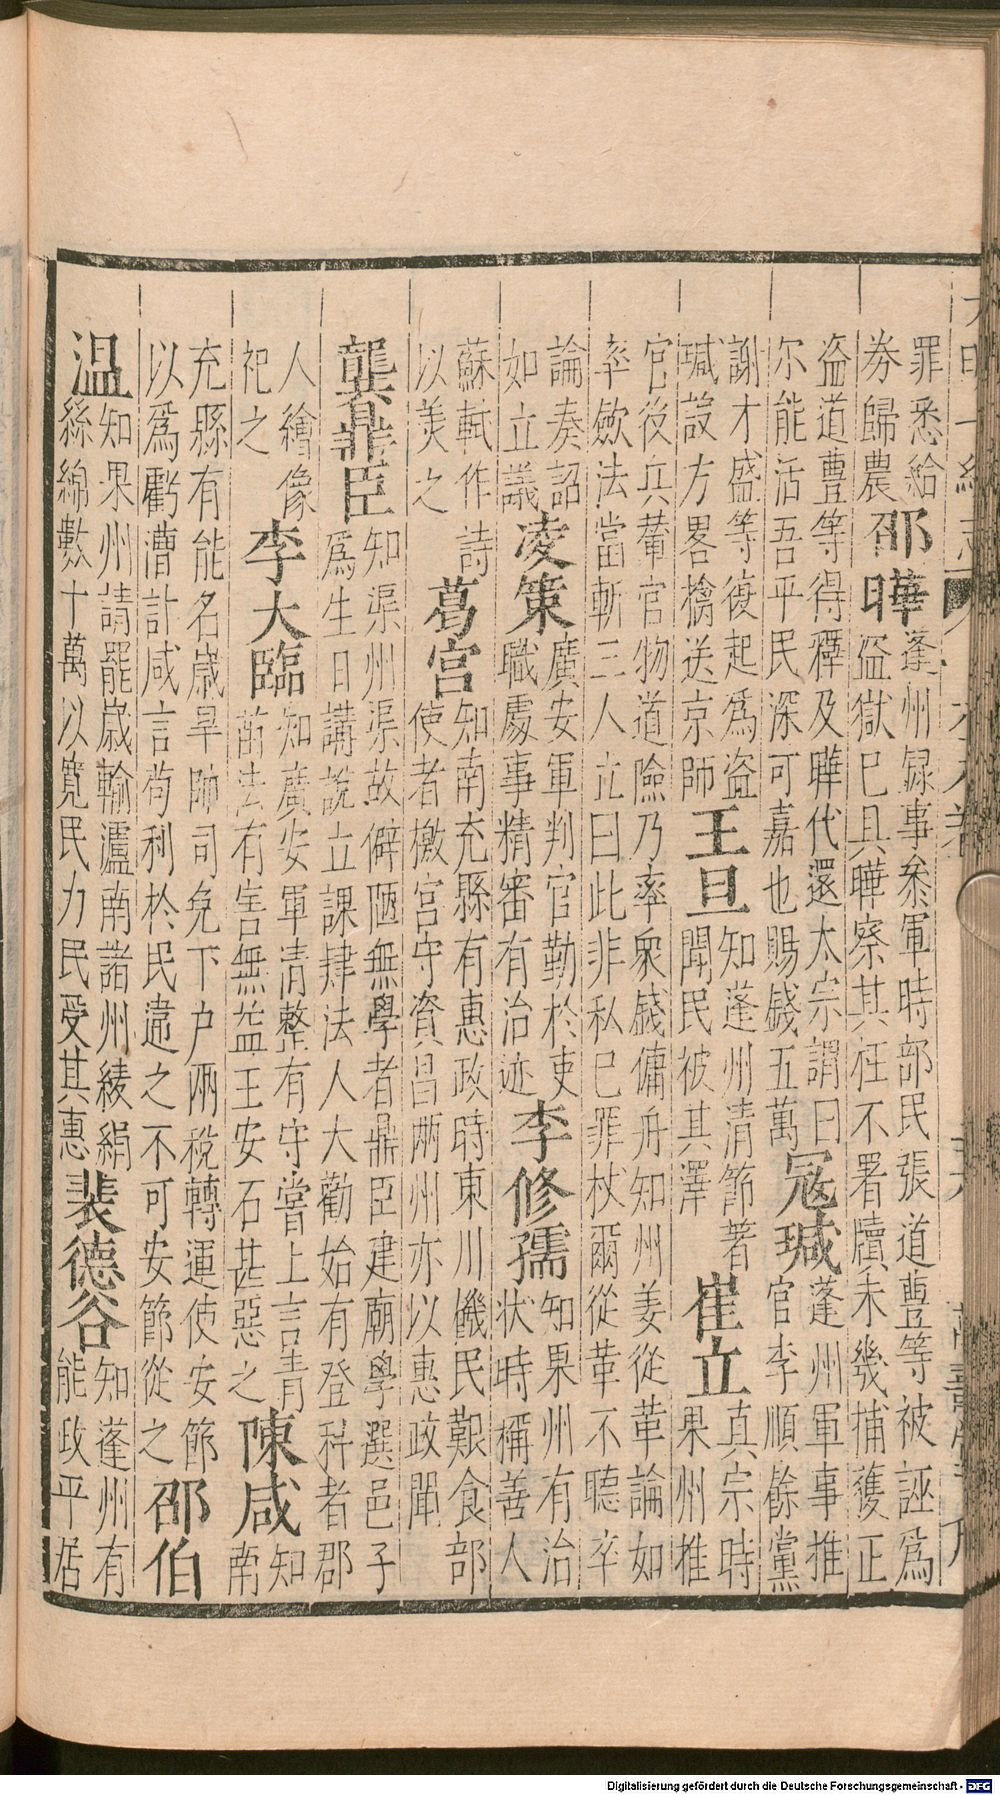 罪悉給
券歸農
邵曄
蓬州録事叅軍時部民張道豊等被誣為
盗獄已具曄察其枉不署牘未幾捕獲正
盗道豊等得釋及曄代還太宗謂曰
尔能活吾平民深可嘉也賜錢五萬
冦瑊
蓬州軍事推
官李順餘黨
謝才盛等復起為盗
瑊設方畧檎送京師
王旦
知蓬州清節著
聞民被其澤
崔立
真宗時
果州推
官役兵輦官物道險乃率衆錢傭舟知州姜從革論如
率斂法當斬三人立曰此非私已罪杖爾從革不聽卒
論奏詔
如立議
凌策
廣安軍判官勤於吏
職處事精審有治迹
李修孺
知果州有治
状時稱善人
蘇軾作詩
以美之
葛宮
知南充縣有惠政時東川饑民艱食部
使者檄宮守資昌兩州亦以惠政聞
龔鼎臣
知渠州渠故僻陋無學者鼎臣建廟學選邑子
為生日講說立課肄法人大勸始有登科者郡
人繪像
祀之
李大臨
知廣安軍清整有守嘗上言青
苗法有害無益王安石甚惡之
陳咸
知
南
充縣有能名歲旱帥司免下户兩稅轉運使安節
以為虧漕計咸言苟利於民違之不可安節從之
邵伯
温
知果州請罷歲輸瀘南諸州綾絹
絲綿數十萬以寬民力民受其惠
裴德谷
知蓬州有
能政平居
Digitalisierung gefördert durch die Deutsche Forschungsgemeinschaft - DFG